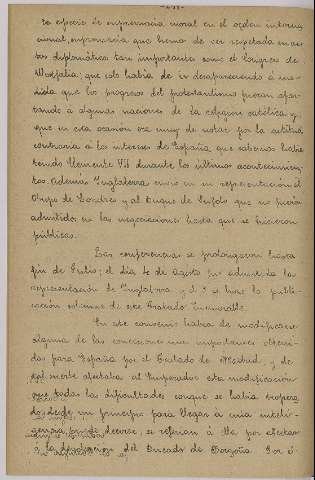 ra especie de supremacia moral en el orden interna
cional, supremacia que hemos de ver respetada en ac
tos diplomáticos tan importantes como el Congreso de
Westfalia; que solo habia de ir desapareciendo á me
dida que los progresos del protestantismo fueran apar
tando á algunas naciones de la religion católica, y
que en esta ocasion era muy de notar por la actitud
contraria á los intereses de España que sabemos habia
tenido Clemente VII durante los últimos acontecimien
tos. Además Inglaterra envió en su representacion al
Obispo de Londres y al Duque de Sufolk que no fueron
admitidos en las negociaciones hasta que se hicieron
públicas.
Las conferencias se prolongaron hasta
fin de Julio; el dia 4 de Agosto fué admitida la
representacion de Inglaterra y el 5 se hizo la publi
cacion solemne de este Tratado memorable.
En este convenio habia de modificarse
alguna de las concesiones mas importantes obteni
das para España por el Tratado de Madrid y de
tal suerte afectaba al Emperador esta modificación
que todas las dificultades con que se habia tropeza
do desde un principio para llegar á una inteli
gencia, puede decirse, se referian á ella por afectar
á la devolucion del Ducado de Borgoña. Por